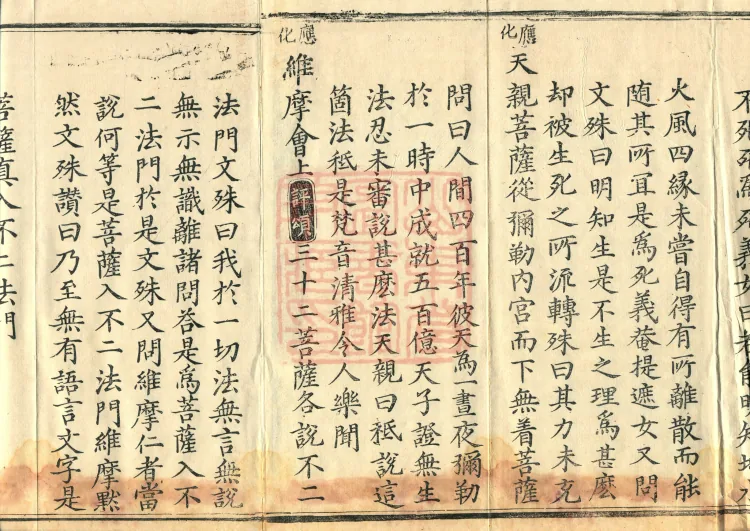 死義女曰若能明知地
火風四緣未嘗自得有所離散而能
随其所冝是爲死義菴提遮女又問
文殊曰明知生是不生之理爲甚麽
却被生死之所流轉殊曰其力未充
應化
天親菩薩從彌勒內宮而下無着菩薩
問曰人間四百年彼天爲一晝夜彌勒
於一時中成就五百億天子證無生
法忍未審說甚麽法天親曰秖說這
箇法秖是梵音清雅令人樂聞
應化
維摩會上三十二菩薩各說不二
法門文殊曰我於一切法無言無說
無示無識離諸問荅是爲菩薩入不
二法門於是文殊又問維摩仁者當
說何等是菩薩入不二法門維摩默
然文殊讚曰乃至無有語言文字是
菩薩真入不二法門